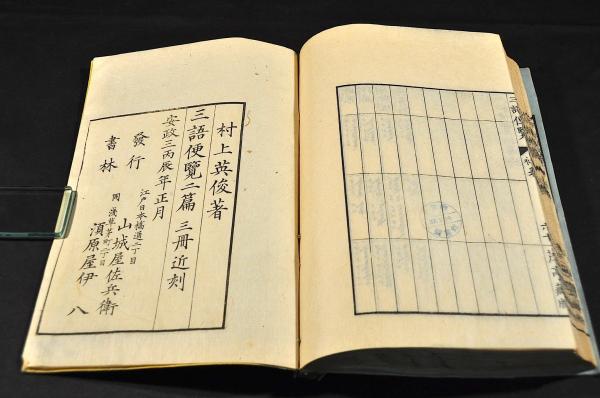 村上英俊著
三語便覽二篇 三冊近刻
安政三丙辰年正月
江戸日本橋通二丁目
發行 山城屋佐兵衛
同 淺草茅町二丁目
書林 須原屋伊八
三語便覽